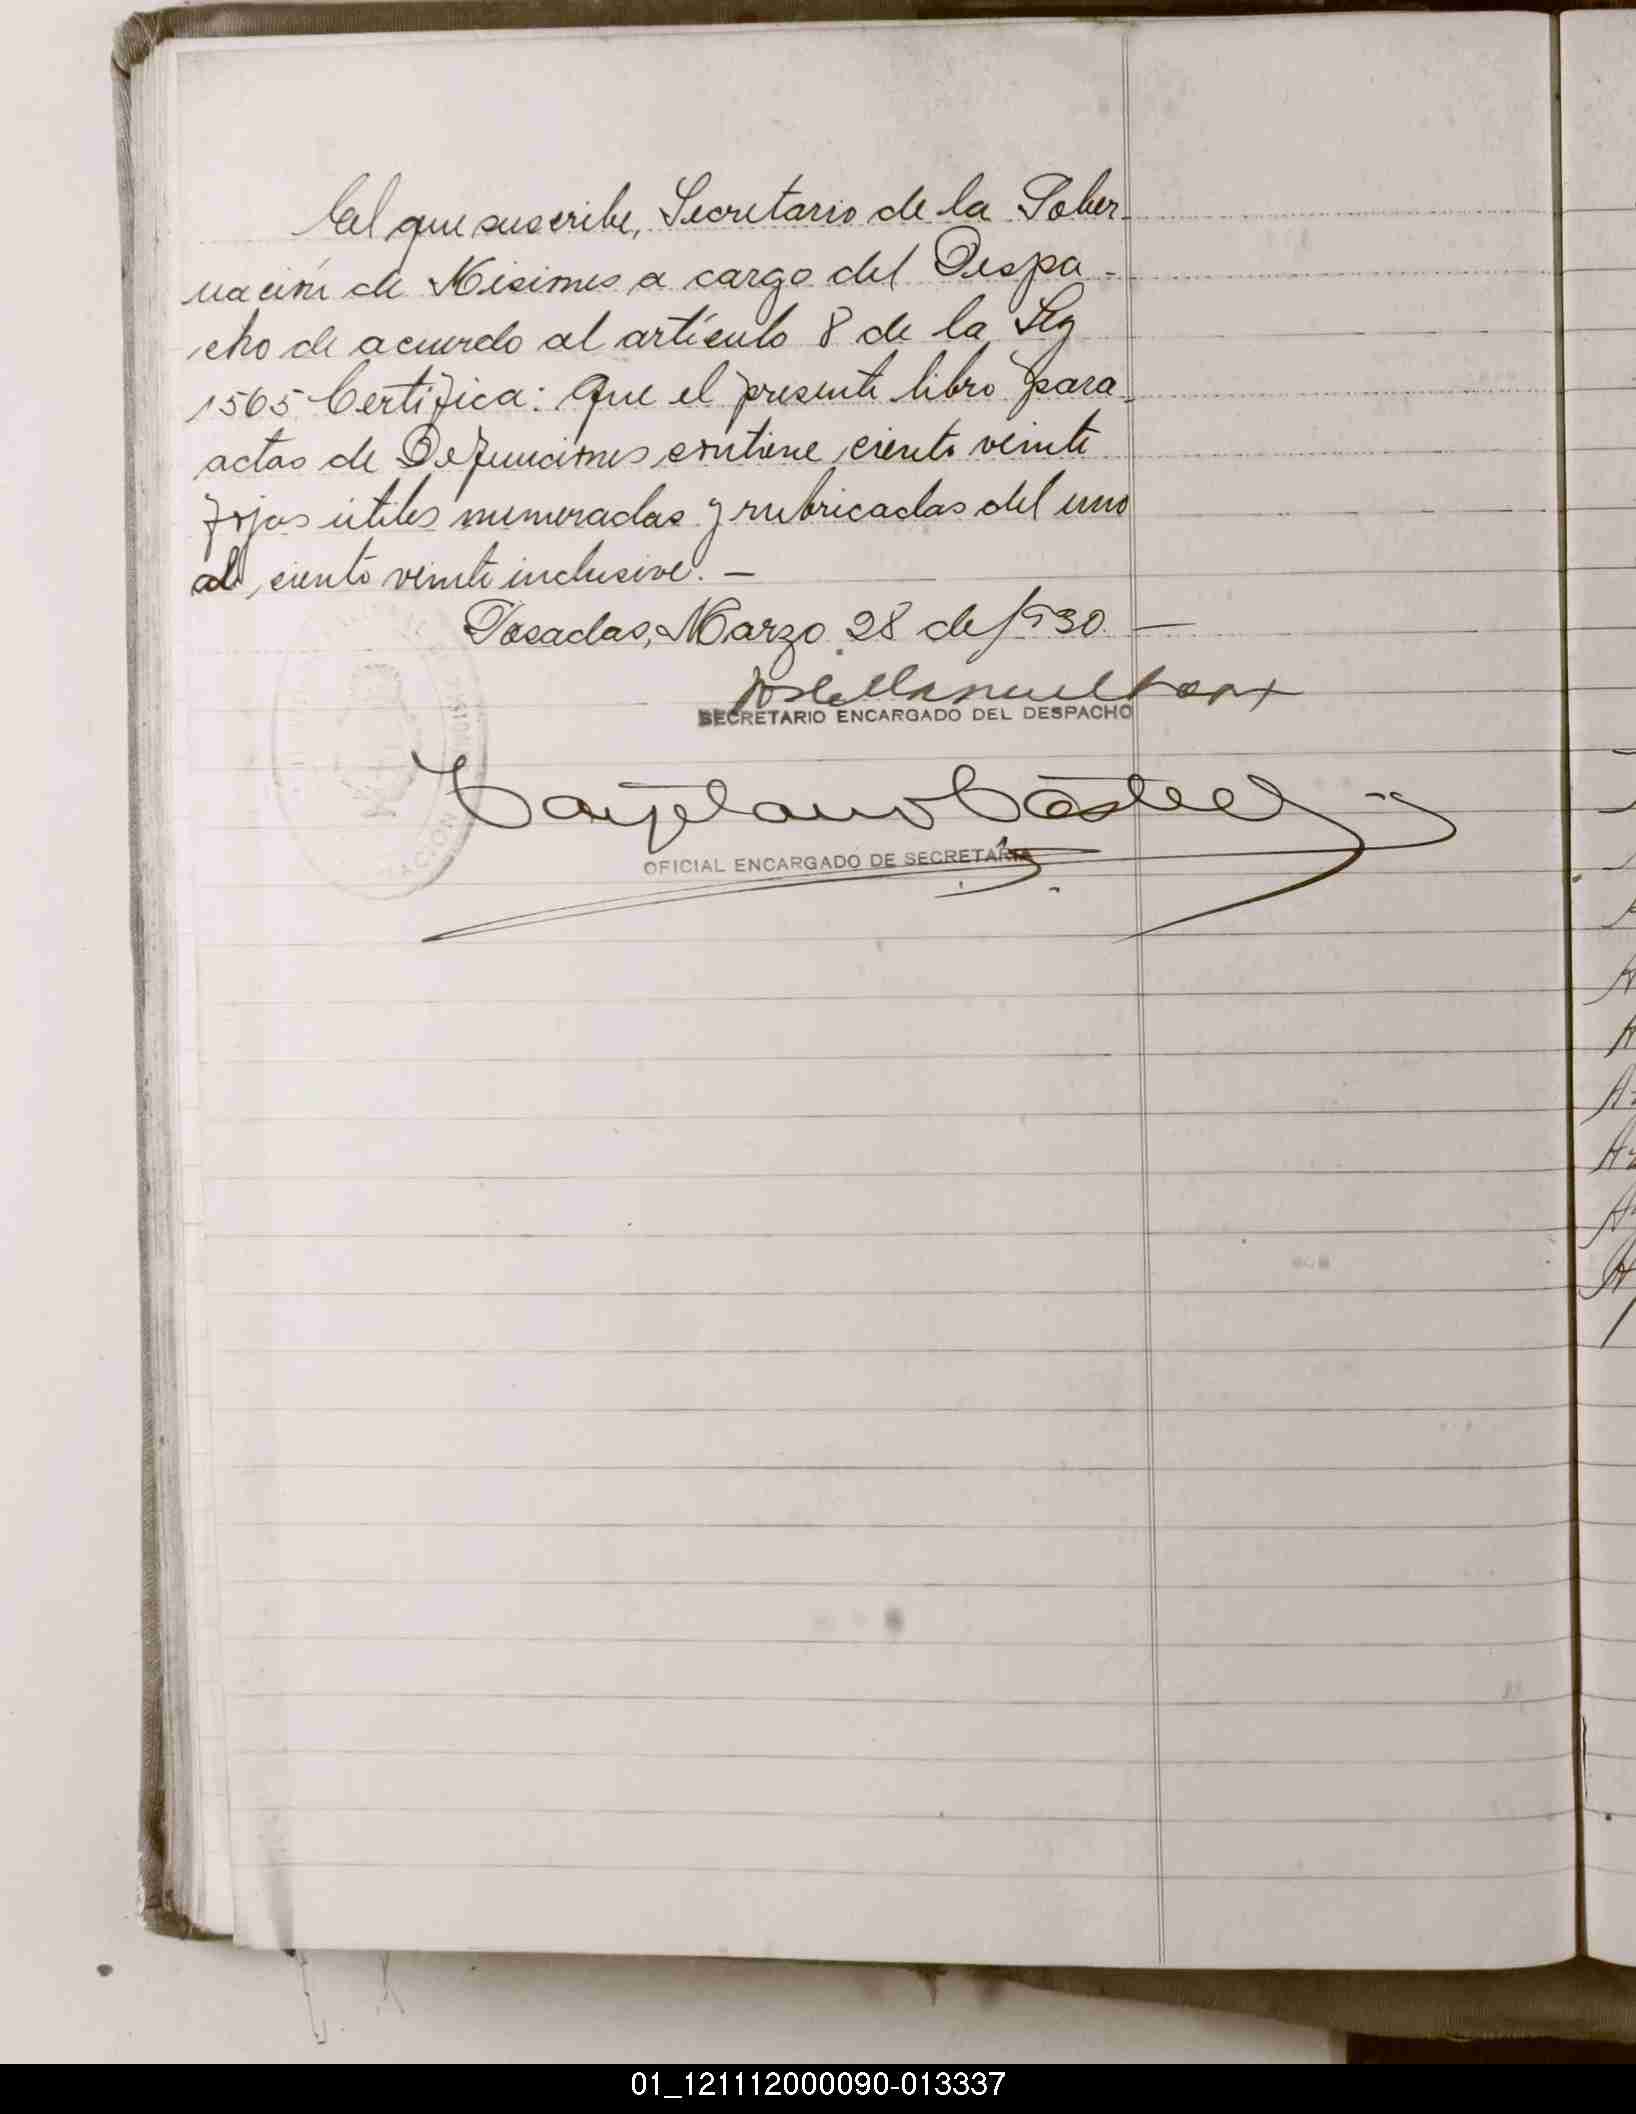 El que suscribe, Secretario de la Gober-
nación de Misiones a cargo del Despa-
cho de acuerdo al artículo 8 de la Ley
1565 Certifica: Que el presente libro para
actas de Defunciones contiene ciento veinte
fojas útiles numeradas y rubricadas del uno
al ciento veinte inclusive. —
Posadas, Marzo 28 de 1930. —
José Manuel
SECRETARIO ENCARGADO DEL DESPACHO
Cayetano Castell
OFICIAL ENCARGADO DE SECRETARIA
01_121112000090-013337